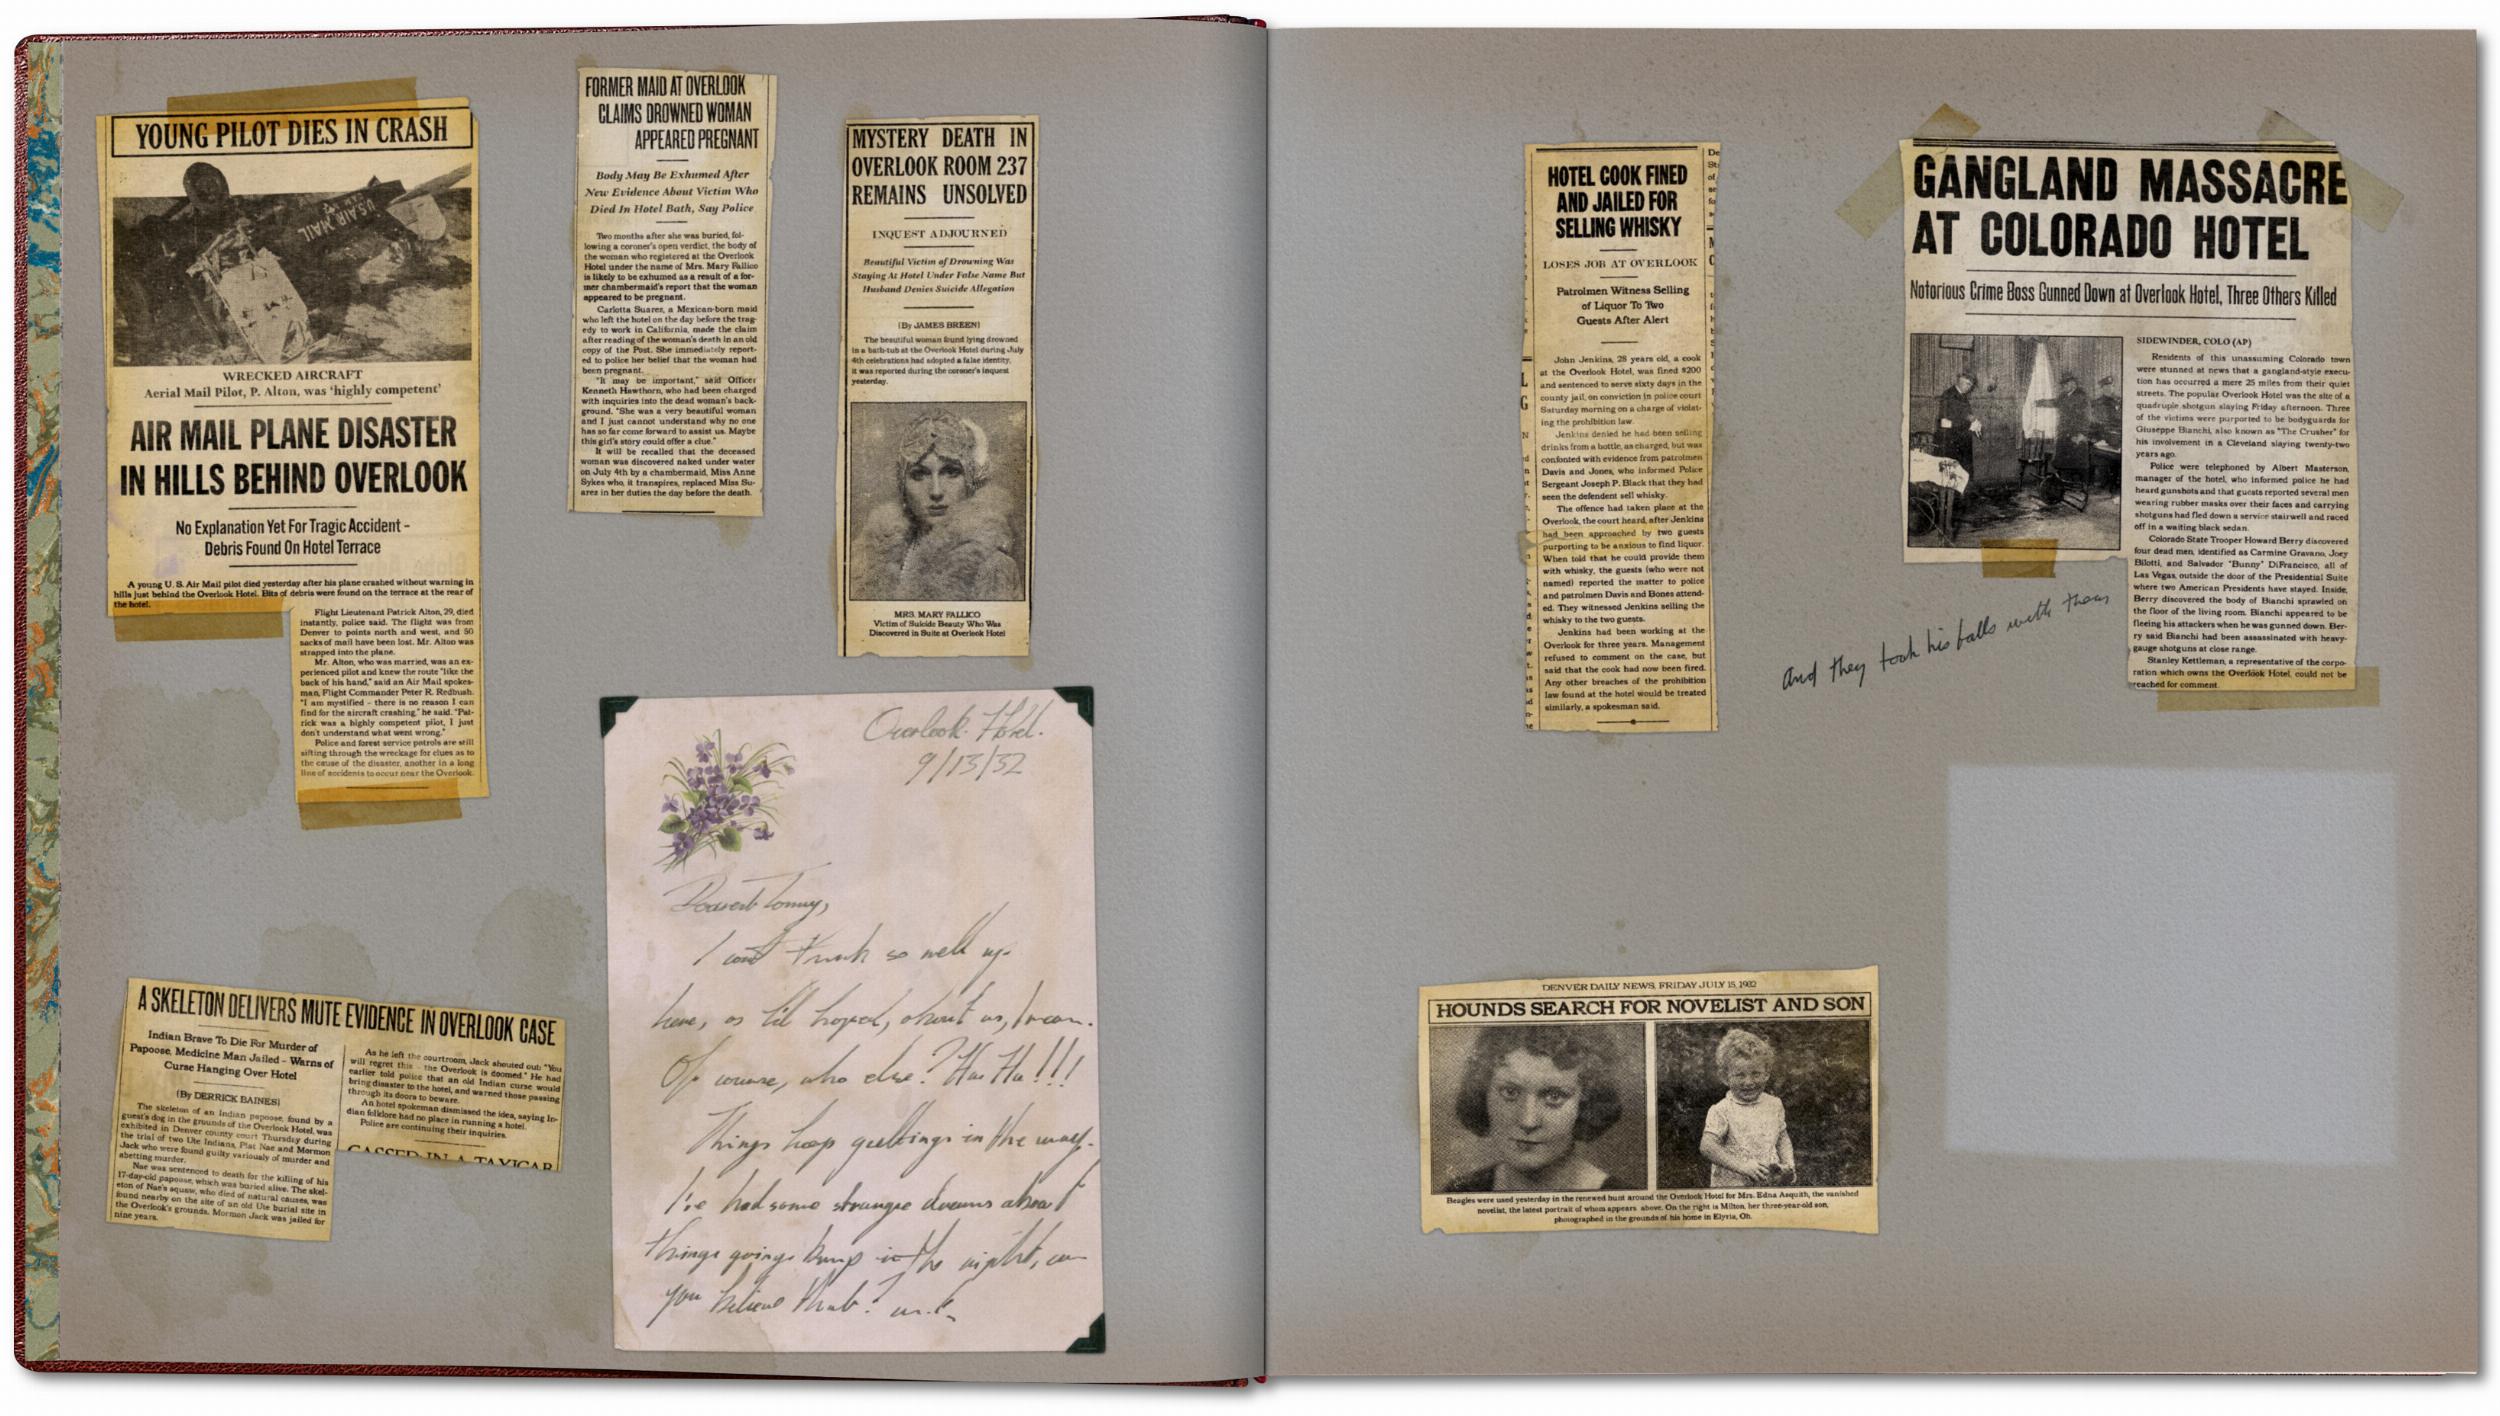 YOUNG PILOT DIES IN CRASH
U.S. AIR MAIL
WRECKED AIRCRAFT
Aerial Mail Pilot, P. Alton, was 'highly competent'
AIR MAIL PLANE DISASTER
IN HILLS BEHIND OVERLOOK
No Explanation Yet For Tragic Accident –
Debris Found On Hotel Terrace
A young U. S. Air Mail pilot died yesterday after his plane crashed without warning in
hills just behind the Overlook Hotel. Bits of debris were found on the terrace at the rear of
the hotel.
Flight Lieutenant Patrick Alton, 29, died
instantly, police said. The flight was from
Denver to points north and west, and 50
sacks of mail have been lost. Mr. Alton was
strapped into the plane.
Mr. Alton, who was married, was an ex-
perienced pilot and knew the route "like the
back of his hand," said an Air Mail spokes-
man, Flight Commander Peter R. Redbush.
"I am mystified – there is no reason I can
find for the aircraft crashing," he said. "Pat-
rick was a highly competent pilot, I just
don't understand what went wrong."
Police and forest service patrols are still
sifting through the wreckage for clues as to
the cause of the disaster, another in a long
line of accidents to occur near the Overlook.
FORMER MAID AT OVERLOOK
CLAIMS DROWNED WOMAN
APPEARED PREGNANT
Body May Be Exhumed After
New Evidence About Victim Who
Died In Hotel Bath, Say Police
Two months after she was buried, fol-
lowing a coroner's open verdict, the body of
the woman who registered at the Overlook
Hotel under the name of Mrs. Mary Fallico
is likely to be exhumed as a result of a for-
mer chambermaid's report that the woman
appeared to be pregnant.
Carlotta Suarez, a Mexican-born maid
who left the hotel on the day before the trag-
edy to work in California, made the claim
after reading of the woman's death in an old
copy of the Post. She immediately report-
ed to police her belief that the woman had
been pregnant.
"It may be important," said Officer
Kenneth Hawthorn, who had been charged
with inquiries into the dead woman's back-
ground. "She was a very beautiful woman
and I just cannot understand why no one
has so far come forward to assist us. Maybe
this girl's story could offer a clue."
It will be recalled that the deceased
woman was discovered naked under water
on July 4th by a chambermaid, Miss Anne
Sykes who, it transpires, replaced Miss Su-
arez in her duties the day before the death.
MYSTERY DEATH IN
OVERLOOK ROOM 237
REMAINS UNSOLVED
INQUEST ADJOURNED
Beautiful Victim of Drowning Was
Staying At Hotel Under False Name But
Husband Denies Suicide Allegation
(By JAMES BREEN)
The beautiful woman found lying drowned
in a bath-tub at the Overlook Hotel during July
4th celebrations had adopted a false identity,
it was reported during the coroner's inquest
yesterday.
MRS. MARY FALLICO
Victim of Suicide Beauty Who Was
Discovered in Suite at Overlook Hotel
A SKELETON DELIVERS MUTE EVIDENCE IN OVERLOOK CASE
Indian Brave To Die For Murder of
Papoose, Medicine Man Jailed – Warns of
Curse Hanging Over Hotel
(By DERRICK BAINES)
The skeleton of an Indian papoose, found by a
guest's dog in the grounds of the Overlook Hotel, was
exhibited in Denver county court Thursday during
the trial of two Ute Indians, Piat Nae and Mormon
Jack who were found guilty variously of murder and
abetting murder.
Nae was sentenced to death for the killing of his
17-day-old papoose, which was buried alive. The skel-
eton of Nae's squaw, who died of natural causes, was
found nearby on the site of an old Ute burial site in
the Overlook's grounds. Mormon Jack was jailed for
nine years.
As he left the courtroom, Jack shouted out: "You
will regret this – the Overlook is doomed." He had
earlier told police that an old Indian curse would
bring disaster to the hotel, and warned those passing
through its doors to beware.
An hotel spokeman dismissed the idea, saying In-
dian folklore had no place in running a hotel.
Police are continuing their inquiries.
GASSED IN A TAXICAB
Overlook Hotel.
9/13/32
Dearest Tommy,
I can't think so well up
here, as I'd hoped, about us, I mean.
Of course, who else? Ha Ha!!!
Things keep gettings in the way.
I've had some strange dreams about
things goings bump in the night, can
you believe that?
HOTEL COOK FINED
AND JAILED FOR
SELLING WHISKY
LOSES JOB AT OVERLOOK
Patrolmen Witness Selling
of Liquor To Two
Guests After Alert
John Jenkins, 28 years old, a cook
at the Overlook Hotel, was fined $200
and sentenced to serve sixty days in the
county jail, on conviction in police court
Saturday morning on a charge of violat-
ing the prohibition law.
Jenkins denied he had been selling
drinks from a bottle, as charged, but was
confonted with evidence from patrolmen
Davis and Jones, who informed Police
Sergeant Joseph P. Black that they had
seen the defendent sell whisky.
The offence had taken place at the
Overlook, the court heard, after Jenkins
had been approached by two guests
purporting to be anxious to find liquor.
When told that he could provide them
with whisky, the guests (who were not
named) reported the matter to police
and patrolmen Davis and Bones attend-
ed. They witnessed Jenkins selling the
whisky to the two guests.
Jenkins had been working at the
Overlook for three years. Management
refused to comment on the case, but
said that the cook had now been fired.
Any other breaches of the prohibition
law found at the hotel would be treated
similarly, a spokesman said.
GANGLAND MASSACRE
AT COLORADO HOTEL
Notorious Crime Boss Gunned Down at Overlook Hotel, Three Others Killed
SIDEWINDER, COLO (AP)
Residents of this unassuming Colorado town
were stunned at news that a gangland-style execu-
tion has occurred a mere 25 miles from their quiet
streets. The popular Overlook Hotel was the site of a
quadruple shotgun slaying Friday afternoon. Three
of the victims were purported to be bodyguards for
Giuseppe Bianchi, also known as "The Crusher" for
his involvement in a Cleveland slaying twenty-two
years ago.
Police were telephoned by Albert Masterson,
manager of the hotel, who informed police he had
heard gunshots and that guests reported several men
wearing rubber masks over their faces and carrying
shotguns had fled down a service stairwell and raced
off in a waiting black sedan.
Colorado State Trooper Howard Berry discovered
four dead men, identified as Carmine Gravano, Joey
Bilotti, and Salvador "Bunny" DiFrancisco, all of
Las Vegas, outside the door of the Presidential Suite
where two American Presidents have stayed. Inside,
Berry discovered the body of Bianchi sprawled on
the floor of the living room. Bianchi appeared to be
fleeing his attackers when he was gunned down. Ber-
ry said Bianchi had been assassinated with heavy-
gauge shotguns at close range.
Stanley Kettleman, a representative of the corpo-
ration which owns the Overlook Hotel, could not be
reached for comment.
and they took his balls with them
DENVER DAILY NEWS, FRIDAY JULY 15, 1932
HOUNDS SEARCH FOR NOVELIST AND SON
Beagles were used yesterday in the renewed hunt around the Overlook Hotel for Mrs. Edna Asquith, the vanished
novelist, the latest portrait of whom appears above. On the right is Milton, her three-year-old son,
photographed in the grounds of his home in Elyria, Oh.